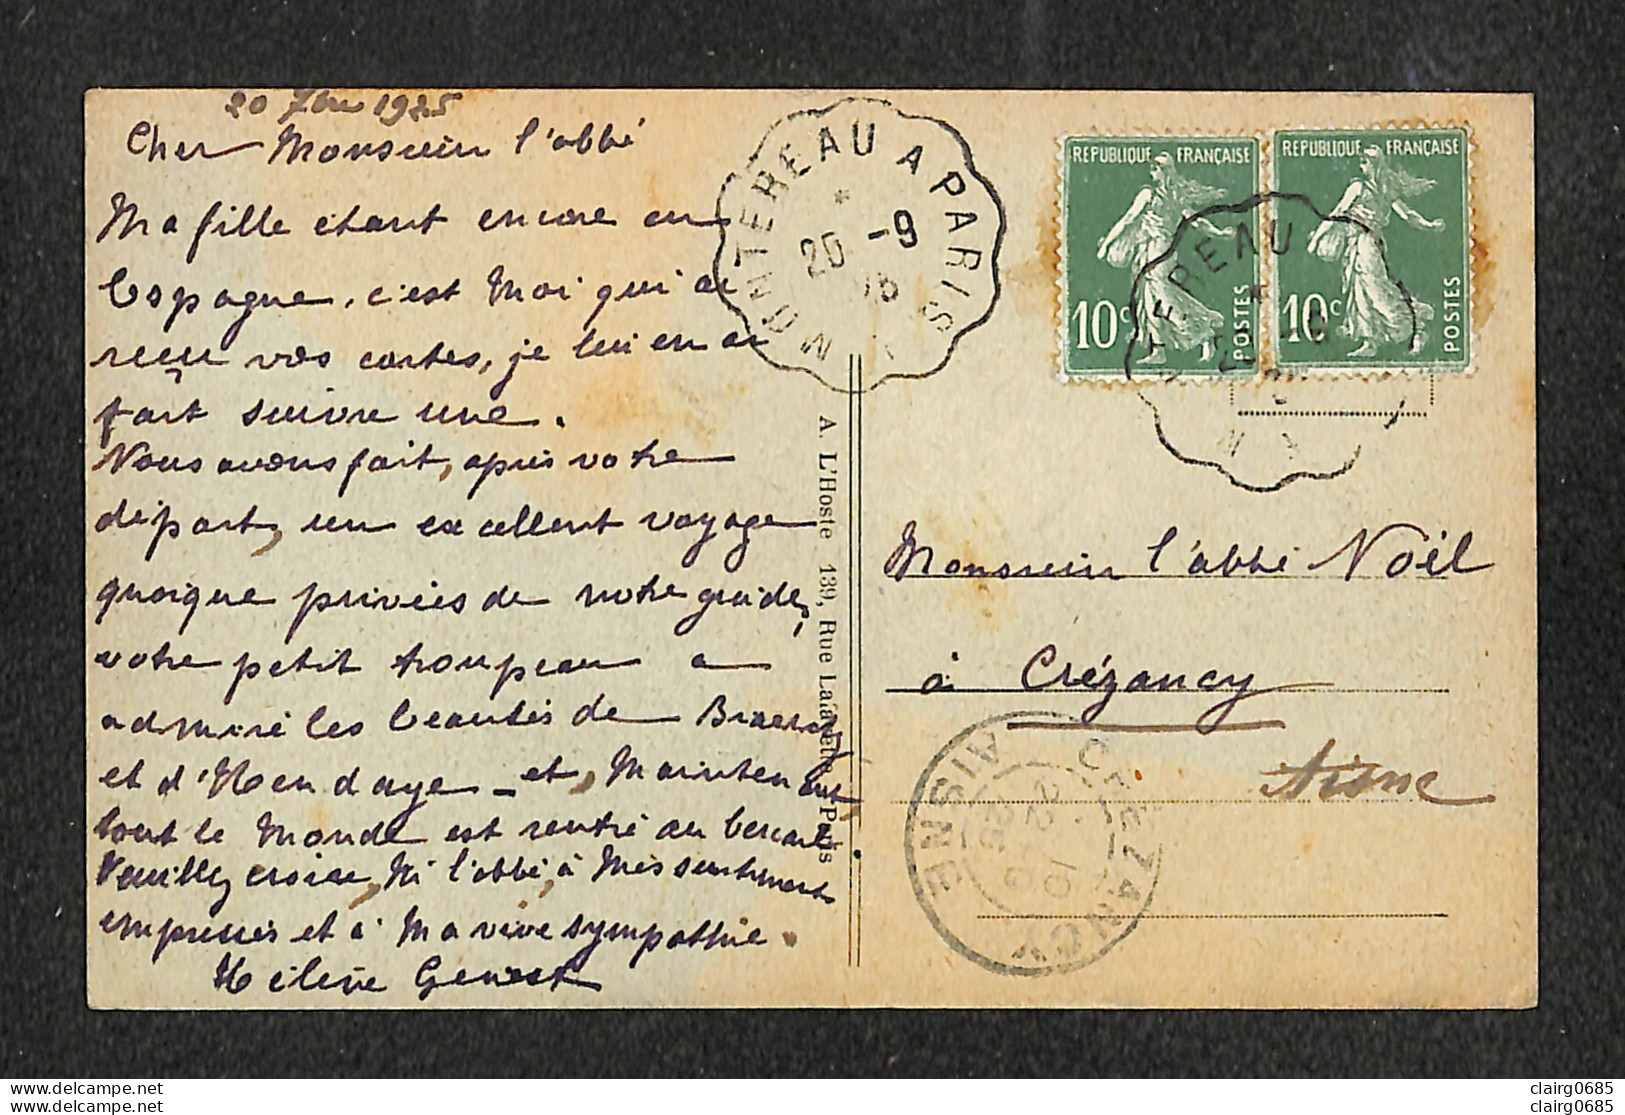 20 7bre 1925
Cher Monsieur l'abbé
Ma fille étant encore en
Espagne, c'est moi qui ai
reçu vos cartes, je lui en ai
fait suivre une.
Nous avons fait, après votre
départ, un excellent voyage
quoique privées de notre guide,
votre petit troupeau a
admiré les beautés de
et d'Hendaye - et, maintenant,
tout le monde est rentré au bercail
Veuillez croire, M. l'abbé, à mes sentiments
empressés et à ma vive sympathie.
Hélène Genest
A. L'Hoste 139, Rue Lafayette Paris
MONTEREAU A PARIS
20 -9
REPUBLIQUE FRANÇAISE
10c
POSTES
REPUBLIQUE FRANÇAISE
10c
POSTES
Monsieur l'abbé Noël
à Crézancy
Aisne
CREZANCY
AISNE
22
25
clairg0685
clairg0685
https://www.delcampe.net
https://www.delcampe.net
clairg0685
clairg0685